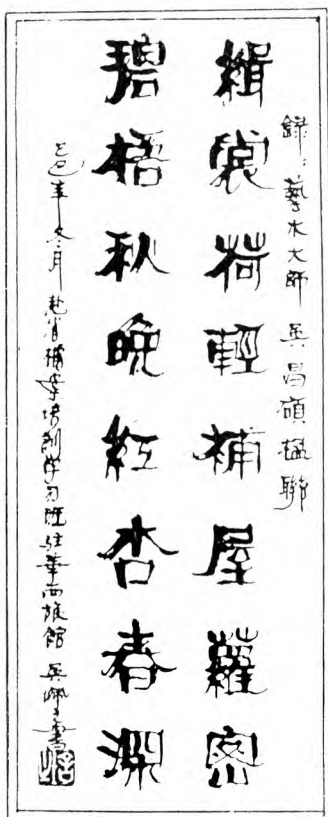 錄：藝术大師 吳昌碩楹聯
緝裳荷輕補屋蘿密
碧梧秋晚紅杏春深
年冬月赴省培訓学习班住華西旅館 吳書